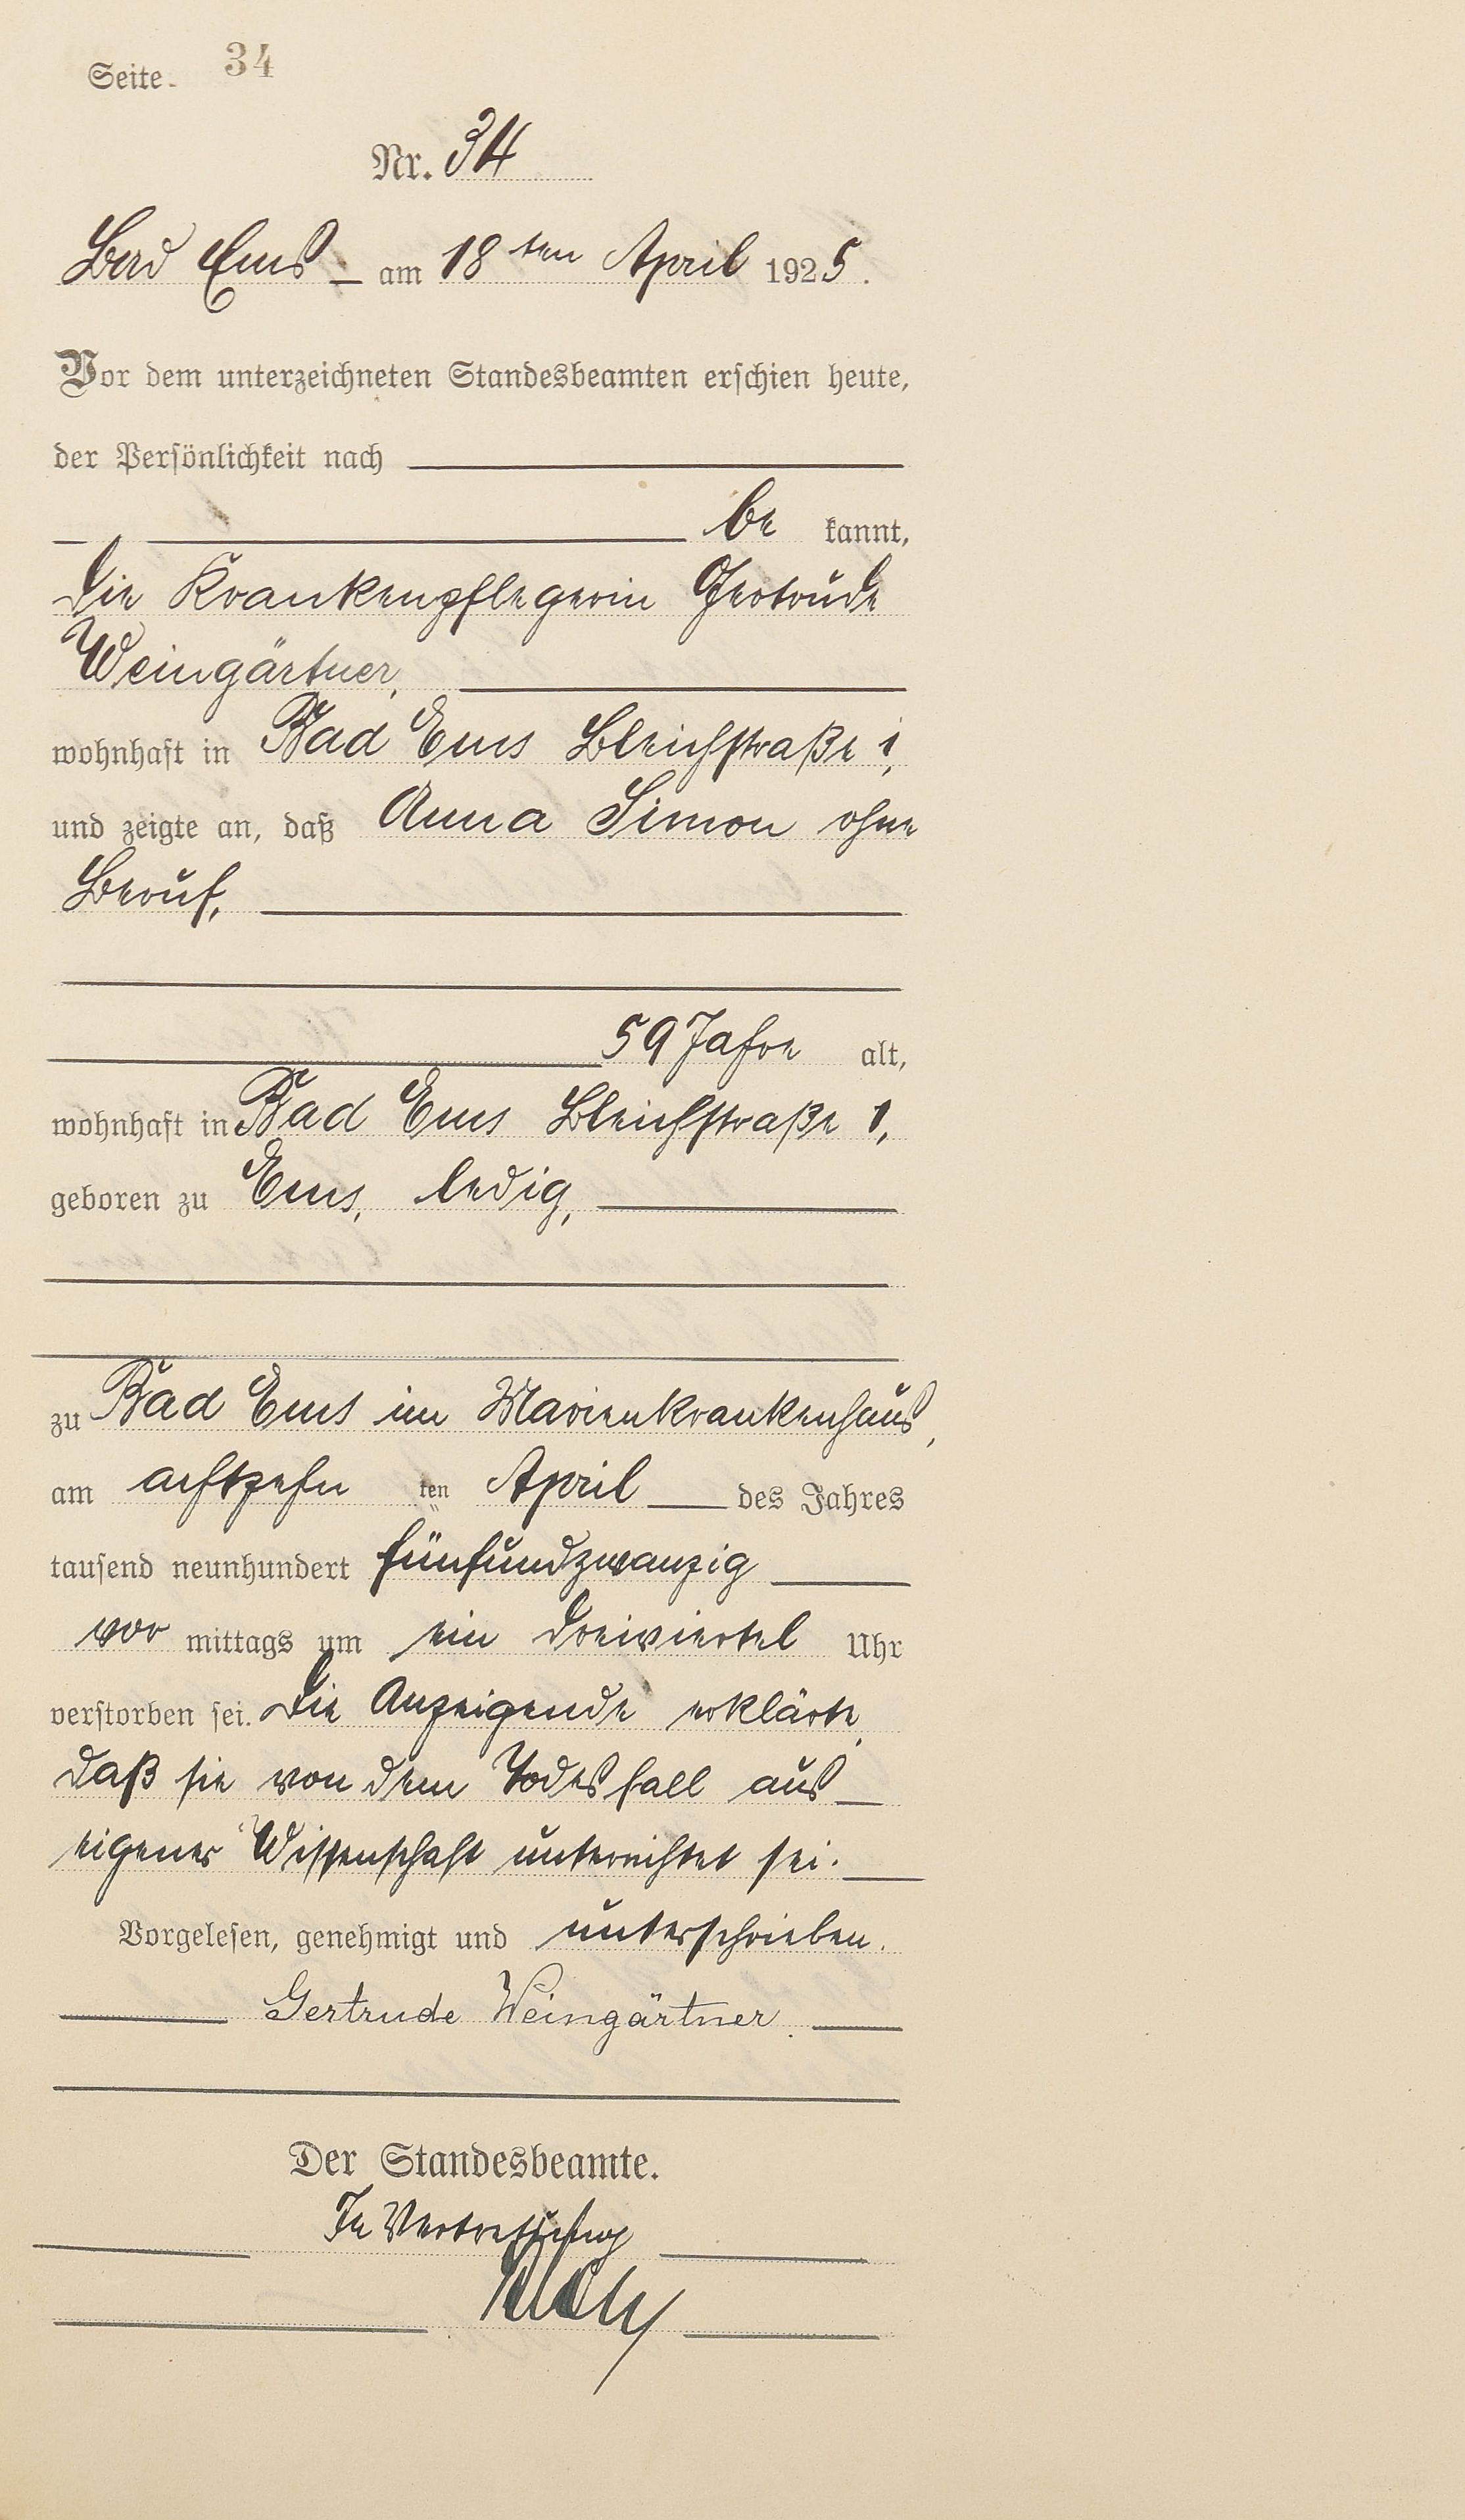 Seite 34
Nr. 34
Bad Ems am 18ten April 1925.
Vor dem unterzeichneten Standesbeamten erschien heute,
der Persönlichkeit nach
be kannt,
die Krankenpflegerin Gertrude
Weingärtner,
wohnhaft in Bad Ems Bleichstraße 1,
und zeigte an, daß Anna Simon ohne
Beruf,
59 Jahre alt,
wohnhaft in Bad Ems Bleichstraße 1,
geboren zu Ems, ledig,
zu Bad Ems im Marienkrankenhaus,
am achtzehn ten April des Jahres
tausend neunhundert fünfundzwanzig
vor mittags um ein dreiviertel Uhr
verstorben sei. Die Anzeigende erklärte,
daß sie von dem Todesfall aus
eigener Wissenschaft unterrichtet sei.
Vorgelesen, genehmigt und unterschrieben.
Gertrude Weingärtner.
Der Standesbeamte.
In Vertretung